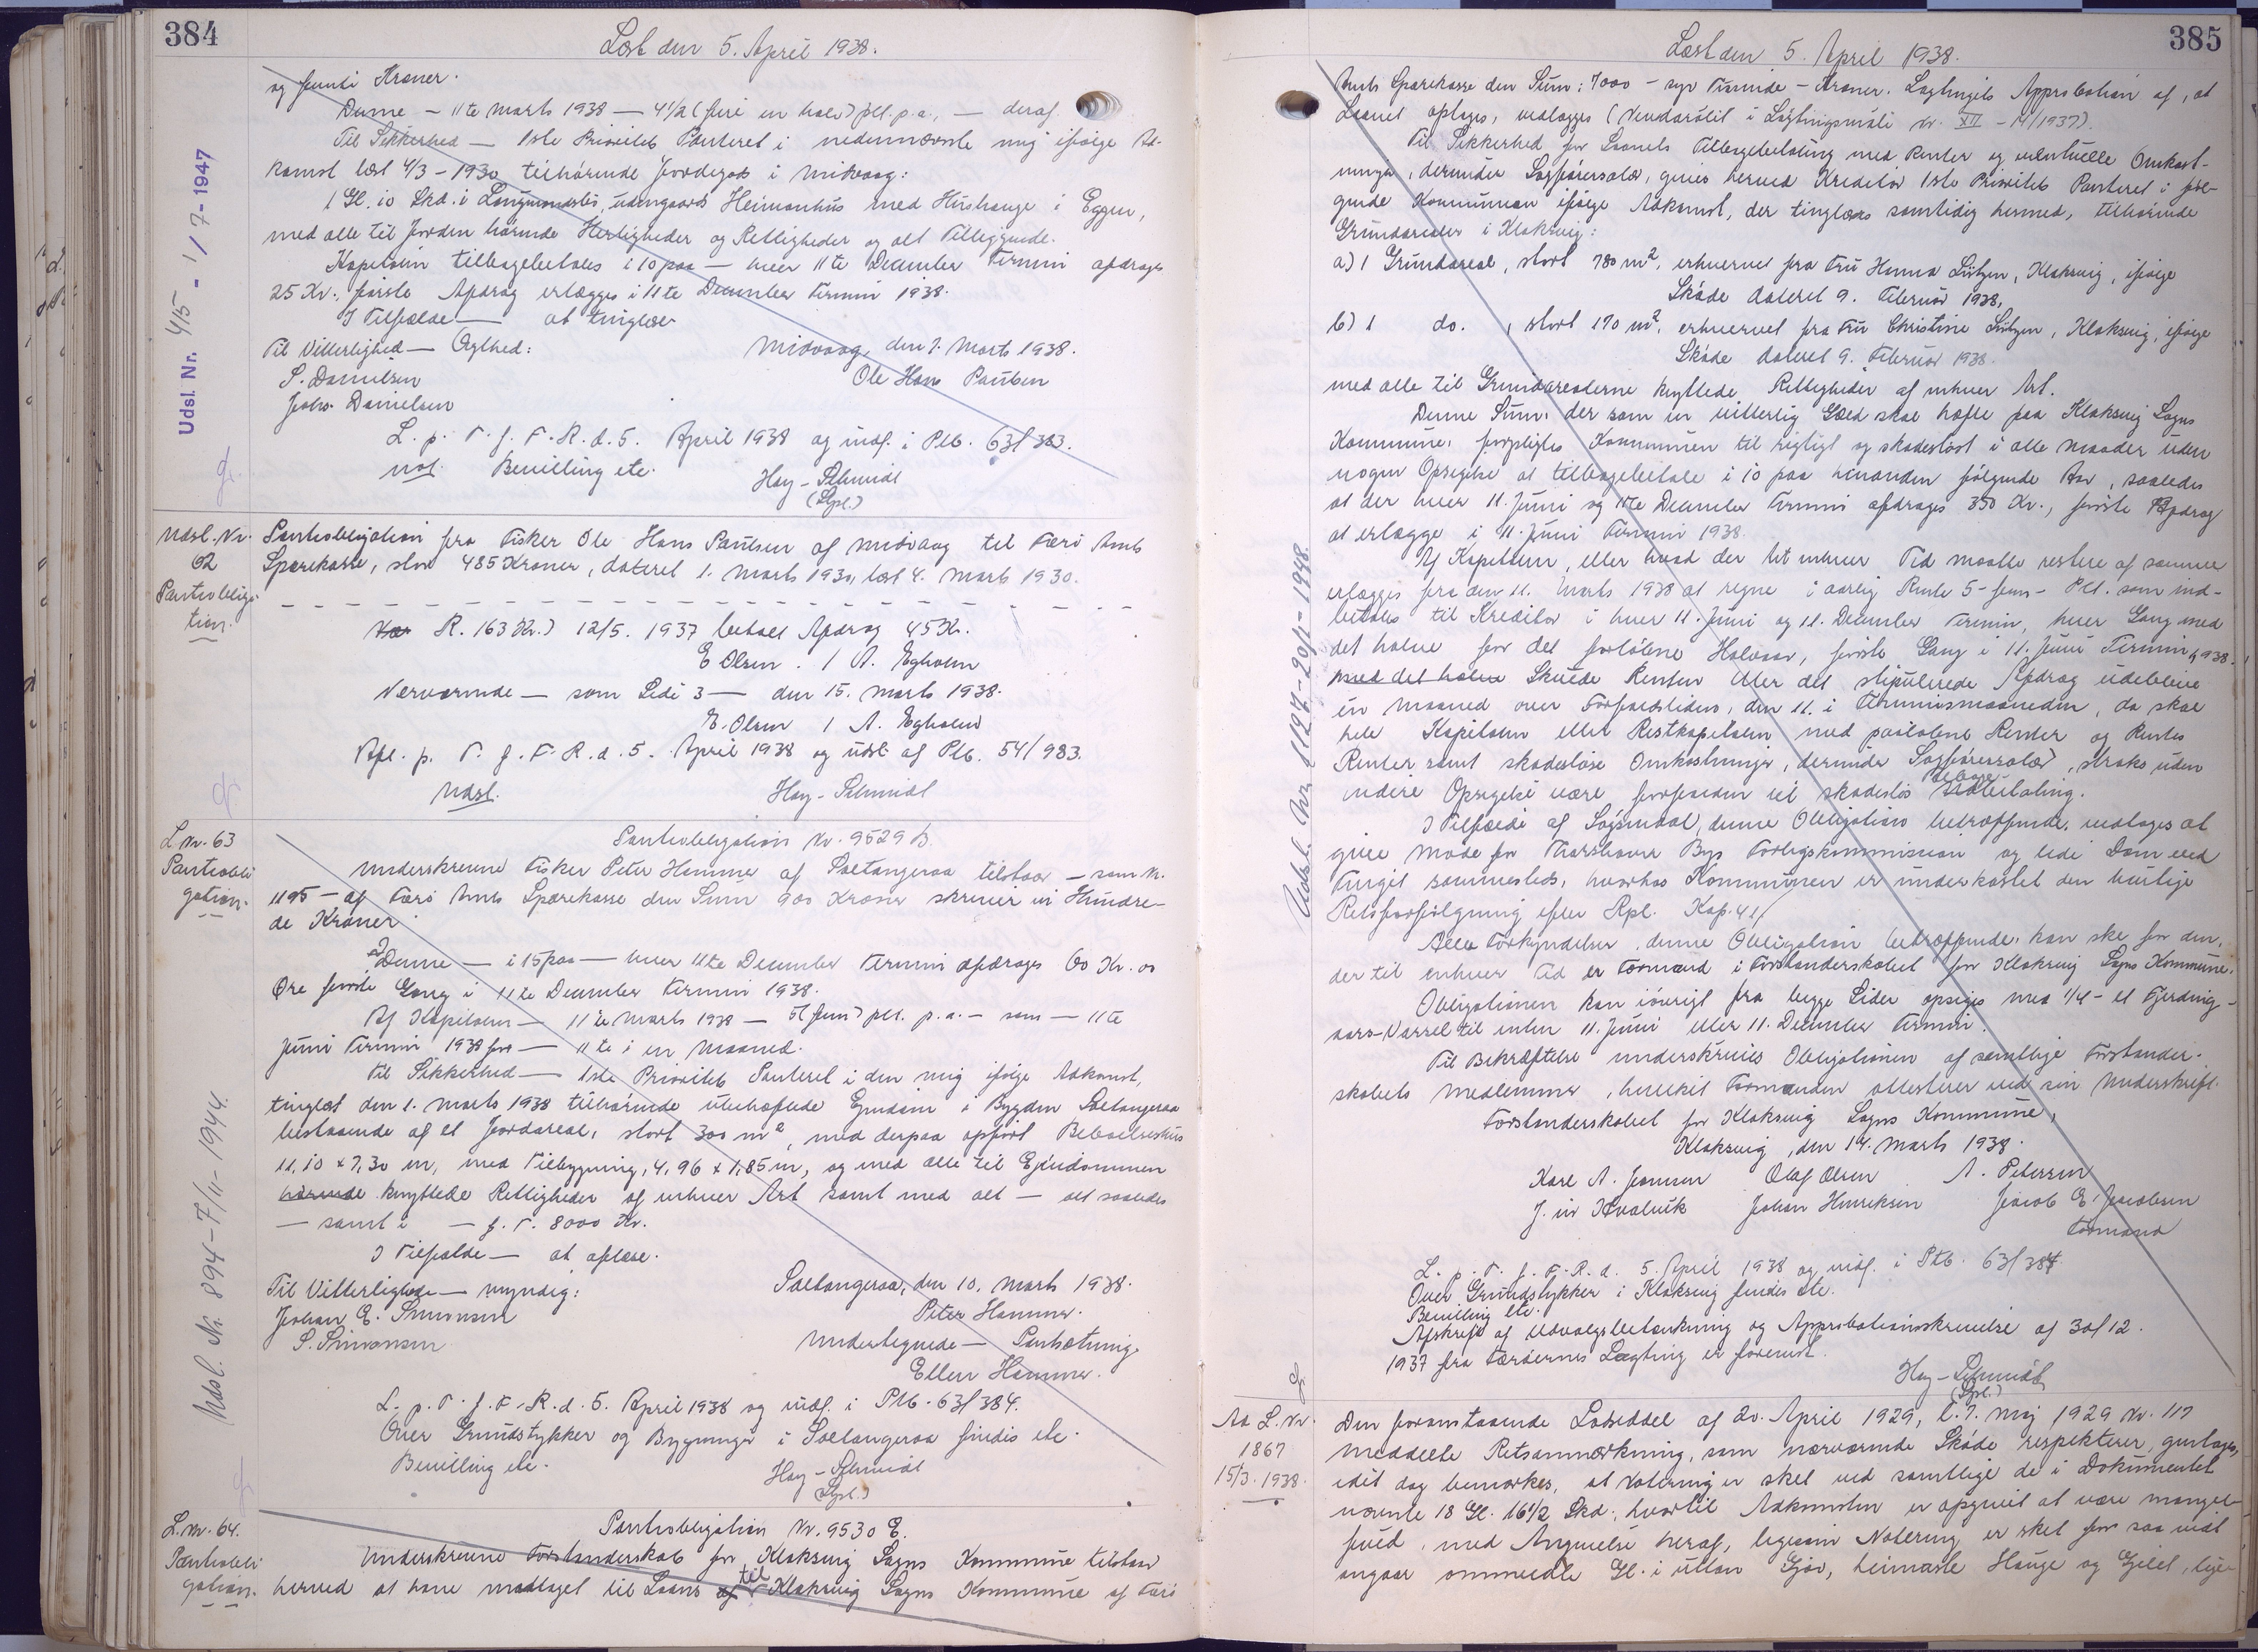 384
Læst den 5. April 1938.
og femti Kroner.
Denne — 11te Marts 1938 — 4 1/2 (fire en halv) pCt. p.a., — deraf.
Til Sikkerhed — 1ste Prioritets Panteret i nedennævnte mig ifølge Ad-
komst læst 4/3 - 1930 tilhørende Jordegods i Midvaag:
1 Gl. 10 Skd. i udengaards Heimanhus med Hushauge i Eggen,
med alle til Jorden hørende Herligheder og Rettigheder og alt Tilliggende.
Kapitalen tilbagebetales i 10 paa — hver 11te December Termin afdrages
25 Kr., første Afdrag erlægges i 11te December Termin 1938.
I Tilfælde — at tinglæse
Til Vitterlighed — Ægthed:
Midvaag, den 7. Marts 1938.
S. Danielsen
Ole Hans Paulsen
Johs. Danielsen
L. p. T. f. F. R. d. 5. April 1938 og indf. i Ptb. 63/383.
not. Bevilling etc.
Hay-Schmidt
(Spl.)
Udsl. Nr. 415 - 1/7-1947
Udsl. Nr.
62
Pantobliga-
tion.
Pantobligation fra Fisker Ole Hans Paulsen af Midvaag til Færø Amts
Sparekasse, stor 485 Kroner, dateret 1. Marts 1930, læst 4. Marts 1930.
R. 163 Kr.) 12/5. 1937 betalt Afdrag 45 Kr.
E Olsen. / A. Egholm
Nærværende — som Side 3 — den 15. Marts 1938.
E. Olsen / A. Egholm
Afl. p. T. f. F. R. d. 5. April 1938 og udsl. af Ptb. 54/983.
Udsl.
Hay-Schmidt
L Nr. 63
Pantobli-
gation.
Pantobligation Nr. 9529 D.
Underskrevne Fisker Peter Hammer af Saltangeraa tilstaar — som N.
1195 — af Færø Amts Sparekasse den Sum 900 Kroner skriver ni Hundre-
de Kroner
Denne — i 15 paa — hver 11te December Termin afdrages 60 Kr. 00
Øre første Gang i 11te December Termin 1938.
Af Kapitalen — 11te Marts 1938 — 5 (fem) pCt. p.a. — som — 11te
Juni Termin 1938 for — 11te i en Maaned.
Til Sikkerhed — 1ste Prioritets Panteret i den mig ifølge Adkomst,
tinglæst den 1. Marts 1938 tilhørende ubehæftede Ejendom i Bygden Saltangeraa
bestaaende af et Jordareal, stort 300 m², med derpaa opført Beboelseshus
11,10 x 7,30 m, med Tilbygning, 4,96 x 1,85 m, og med alle til Ejendommen
hørende knyttede Rettigheder af enhver Art samt med alt — alt saaledes
— samt i — f. T. 8000 Kr.
I Tilfælde — at aflæse.
Til Vitterlighed — myndig:
Saltangeraa, den 10. Marts 1938.
Johan E. Simonsen
Peter Hammer.
S. Simonsen
Undertegnede — Pantsætning.
Ellen Hammer.
L. p. T. f. F. R. d. 5. April 1938 og indf. i Ptb. 63/384.
Over Grundstykker og Bygninger i Saltangeraa findes etc.
Bevilling etc.
Hay-Schmidt
(Spl.)
Udsl. Nr. 894 - 7/11 - 1944.
L. Nr. 64.
Pantobli-
gation.
Pantobligation Nr. 9530 E.
Underskrevne Forstanderskab for Klaksvig Sogns Kommune tilstaar
herved at have modtaget til Laans af til Klaksvig Sogns Kommune af Færø
385
Læst den 5. April 1938.
Amts Sparekasse den Sum: 7000 - syv Tusinde - Kroner. Lagtingets Approbation af, at
Laanet optages, vedlægges (Vendarøtit i Løgtingsmáli Nr. XII - 14/1937).
Til Sikkerhed for Laanets Tilbagebetaling med Renter og eventuelle Omkost-
ninger, derunder Sagførersalær, gives herved Kreditor 1ste Prioritets Panteret i føl-
gende Kommunen ifølge Adkomst, der tinglæses samtidig hermed, tilhørende
Grundarealer i Klaksvig:
a) 1 Grundareal, stort 780 m², erhvervet fra Fru Hanna Lützen, Klaksvig, ifølge
Skøde dateret 9. Februar 1938,
b) 1 do. , stort 170 m², erhvervet fra Fru Christine Lützen, Klaksvig, ifølge
Skøde dateret 9. Februar 1938.
med alle til Grundarealerne knyttede Rettigheder af enhver Art.
Denne Sum, der som en vitterlig Gæld skal hæfte paa Klaksvig Sogns
Kommune, forpligtes Kommunen til rigtigt og skadesløst i alle Maader uden
nogen Opsigelse at tilbagebetale i 10 paa hinanden følgende Aar, saaledes
at der hver 11. Juni og 11te December Termin afdrages 350 Kr., første Afdrag
at erlægge i 11. Juni Termin 1938.
Af Kapitalen, eller hvad der til enhver Tid maatte restere af samme
erlægges fra den 11. Marts 1938 at regne i aarlig Rente 5 - fem - Pct. som ind-
betales til Kreditor i hver 11. Juni og 11. December Termin, hver Gang med
det halve for det forløbne Halvaar, første Gang i 11. Juni Termin 1938.
med det halve Skulde Renten eller det stipulerede Afdrag udeblive
en Maaned over Forfaldstiden, den 11. i Terminsmaaneden, da skal
hele Kapitalen eller Restkapitalen med paaløbne Renter og Rentes
Renter samt skadesløse Omkostninger, derunder Sagførersalær, straks uden
videre Opsigelse være forfalden til skadesløs Udbetaling.
I Tilfælde af Søgsmaal, denne Obligation betræffende, vedtages at
give Møde for Thorshavns Bys Forligskommission og lide Dom ved
Tinget sammesteds, hvorhos Kommunen er underkastet den hurtige
Retsforfølgning efter Rpl. Kap. 41.
Alle Forkyndelser, denne Obligation betræffende, kan ske for den,
der til enhver Tid er Formand i Forstanderskabet for Klaksvig Sogns Kommune.
Obligationen kan iøvrigt fra begge Sider opsiges med 1/4 - et Fjerding-
aars - Varsel til enten 11. Juni eller 11. December Termin.
Til Bekræftelse underskrives Obligationen af samtlige Forstander-
skabets Medlemmer, hvilket Formanden attesterer ved sin Underskrift.
Forstanderskabet for Klaksvig Sogns Kommune,
Klaksvig, den 14. Marts 1938.
Karl A. Joensen Olaf Olsen A. Petersen
J. við Kvalvik Johan Henriksen Jacob E. Jacobsen
Formand
L. p. T. f. F. R. d. 5. April 1938 og indf. i Ptb. 63/384.
Over Grundstykker i Klaksvig findes etc.
Bevilling etc.
Afskrift af Udvalgsbetænkning og Approbationsskrivelse af 30/12.
1937 fra Færøernes Lagting er forevist.
Hay-Schmidt
(Spl.)
Udsl. Nr. 1127 - 20/1 - 1948.
Ad L. Nr.
1867
15/3. 1938.
Den foranstaaende Lodseddel af 20. April 1929, l. 7. Maj 1929 Nr. 117
meddelte Retsanmærkning, som nærværende Skøde respekterer, gentages,
idet dog bemærkes, at Notering er sket ved samtlige de i Dokumentet
nævnte 18 Gl. 16 1/2 Skd., hvortil Adkomsten er opgivet at være mangel-
fuld, med Angivelse heraf, ligesom Notering er sket for saa vidt
angaar ommeldte Gl. i uttan Gjøv, heimaste Hauge og Gilet, lige-